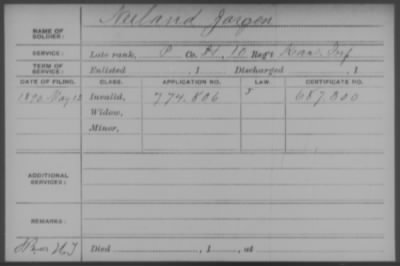 Neeland Jorgen
NAME OF SOLDIER:
SERVICE: Late rank, P Co. H, 10 Reg't Kans. Inf
TERM OF SERVICE: Enlisted , 1 Discharged , 1
DATE OF FILING. CLASS. APPLICATION NO. LAW. CERTIFICATE NO.
1890 May 12 Invalid, 774.806 687.300
Widow,
Minor,
ADDITIONAL SERVICES:
REMARKS:
Died , 1 , at